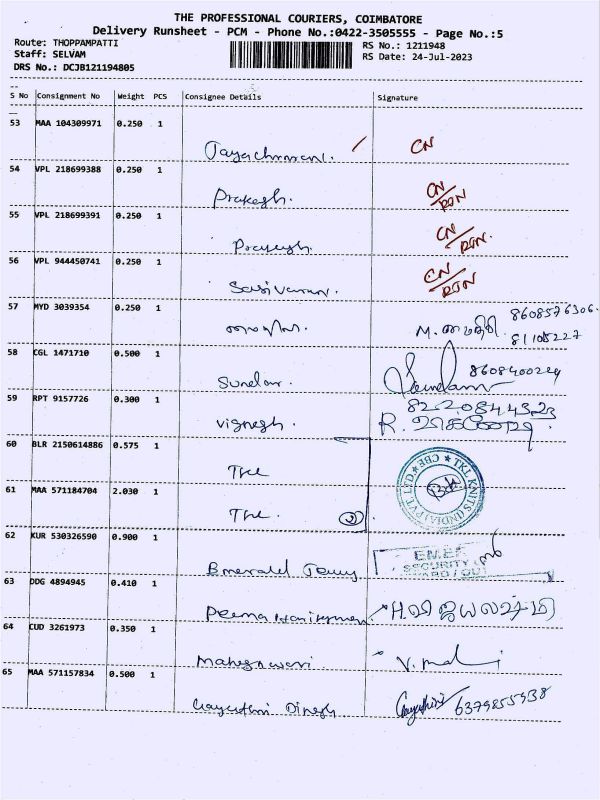 THE PROFESSIONAL COURIERS, COIMBATORE
Delivery Runsheet - PCM - Phone No.:0422-3505555 - Page No.:5
Route: THOPPAMPATTI
Staff: SELVAM
DRS No.: DCJB121194805
RS No.: 1211948
RS Date: 24-Jul-2023
S No Consignment No Weight PCS Consignee Details Signature
53 MAA 104309971 0.250 1
CN
54 VPL 218699388 0.250 1
Prakash. CN/RTN
55 VPL 218699391 0.250 1
CN/RTN.
56 VPL 944450741 0.250 1
Sasivaran. CN/RTN
57 MYD 3039354 0.250 1
8608576306.
M.
58 CGL 1471710 0.500 1
Sundar. 8608400224
59 RPT 9157726 0.300 1
8220844323
Vignesh. R.
60 BLR 2150614886 0.575 1
TKL
TKL KNITS (INDIA) PVT. LTD. ★ CBE ★
61 MAA 571184704 2.030 1
TKL. 2
62 KUR 530326590 0.900 1
Emerald Jewry
SECURITY
63 DDG 4894945 0.410 1
H. விஜயலட்சுமி
64 CUD 3261973 0.350 1
Maheswari. V.
65 MAA 571157834 0.500 1
Gayathri Dinesh Gayathri 6379855938